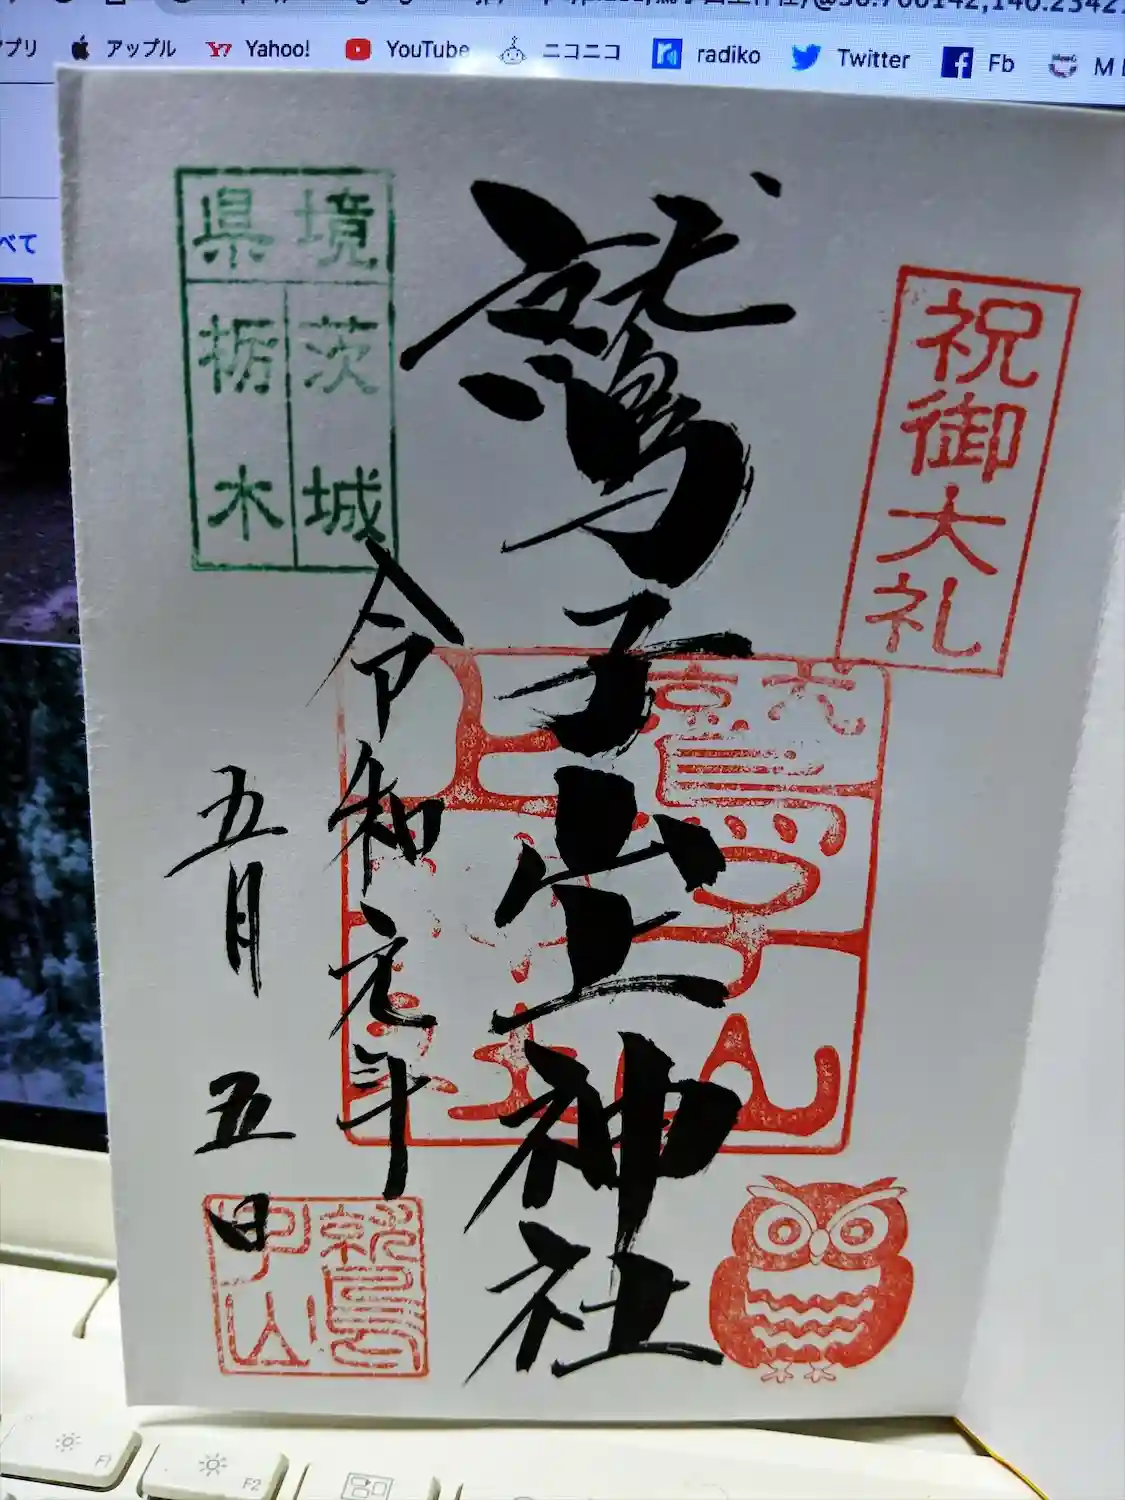 アップル Yahoo! YouTube ニコニコ radiko Twitter Fb
べて
祝御大礼
鷲子山上神社
県境
茨城
栃木
令和元年
五月五日
鷲子山
F1 F2